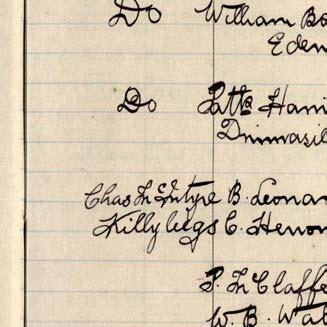 Do William Bo
Eden
Do Patk Hami
Drimnasil
Chas McIntyre B. Leonar
Killybegs C. Heron
P. McClaffe
W. B. Wal